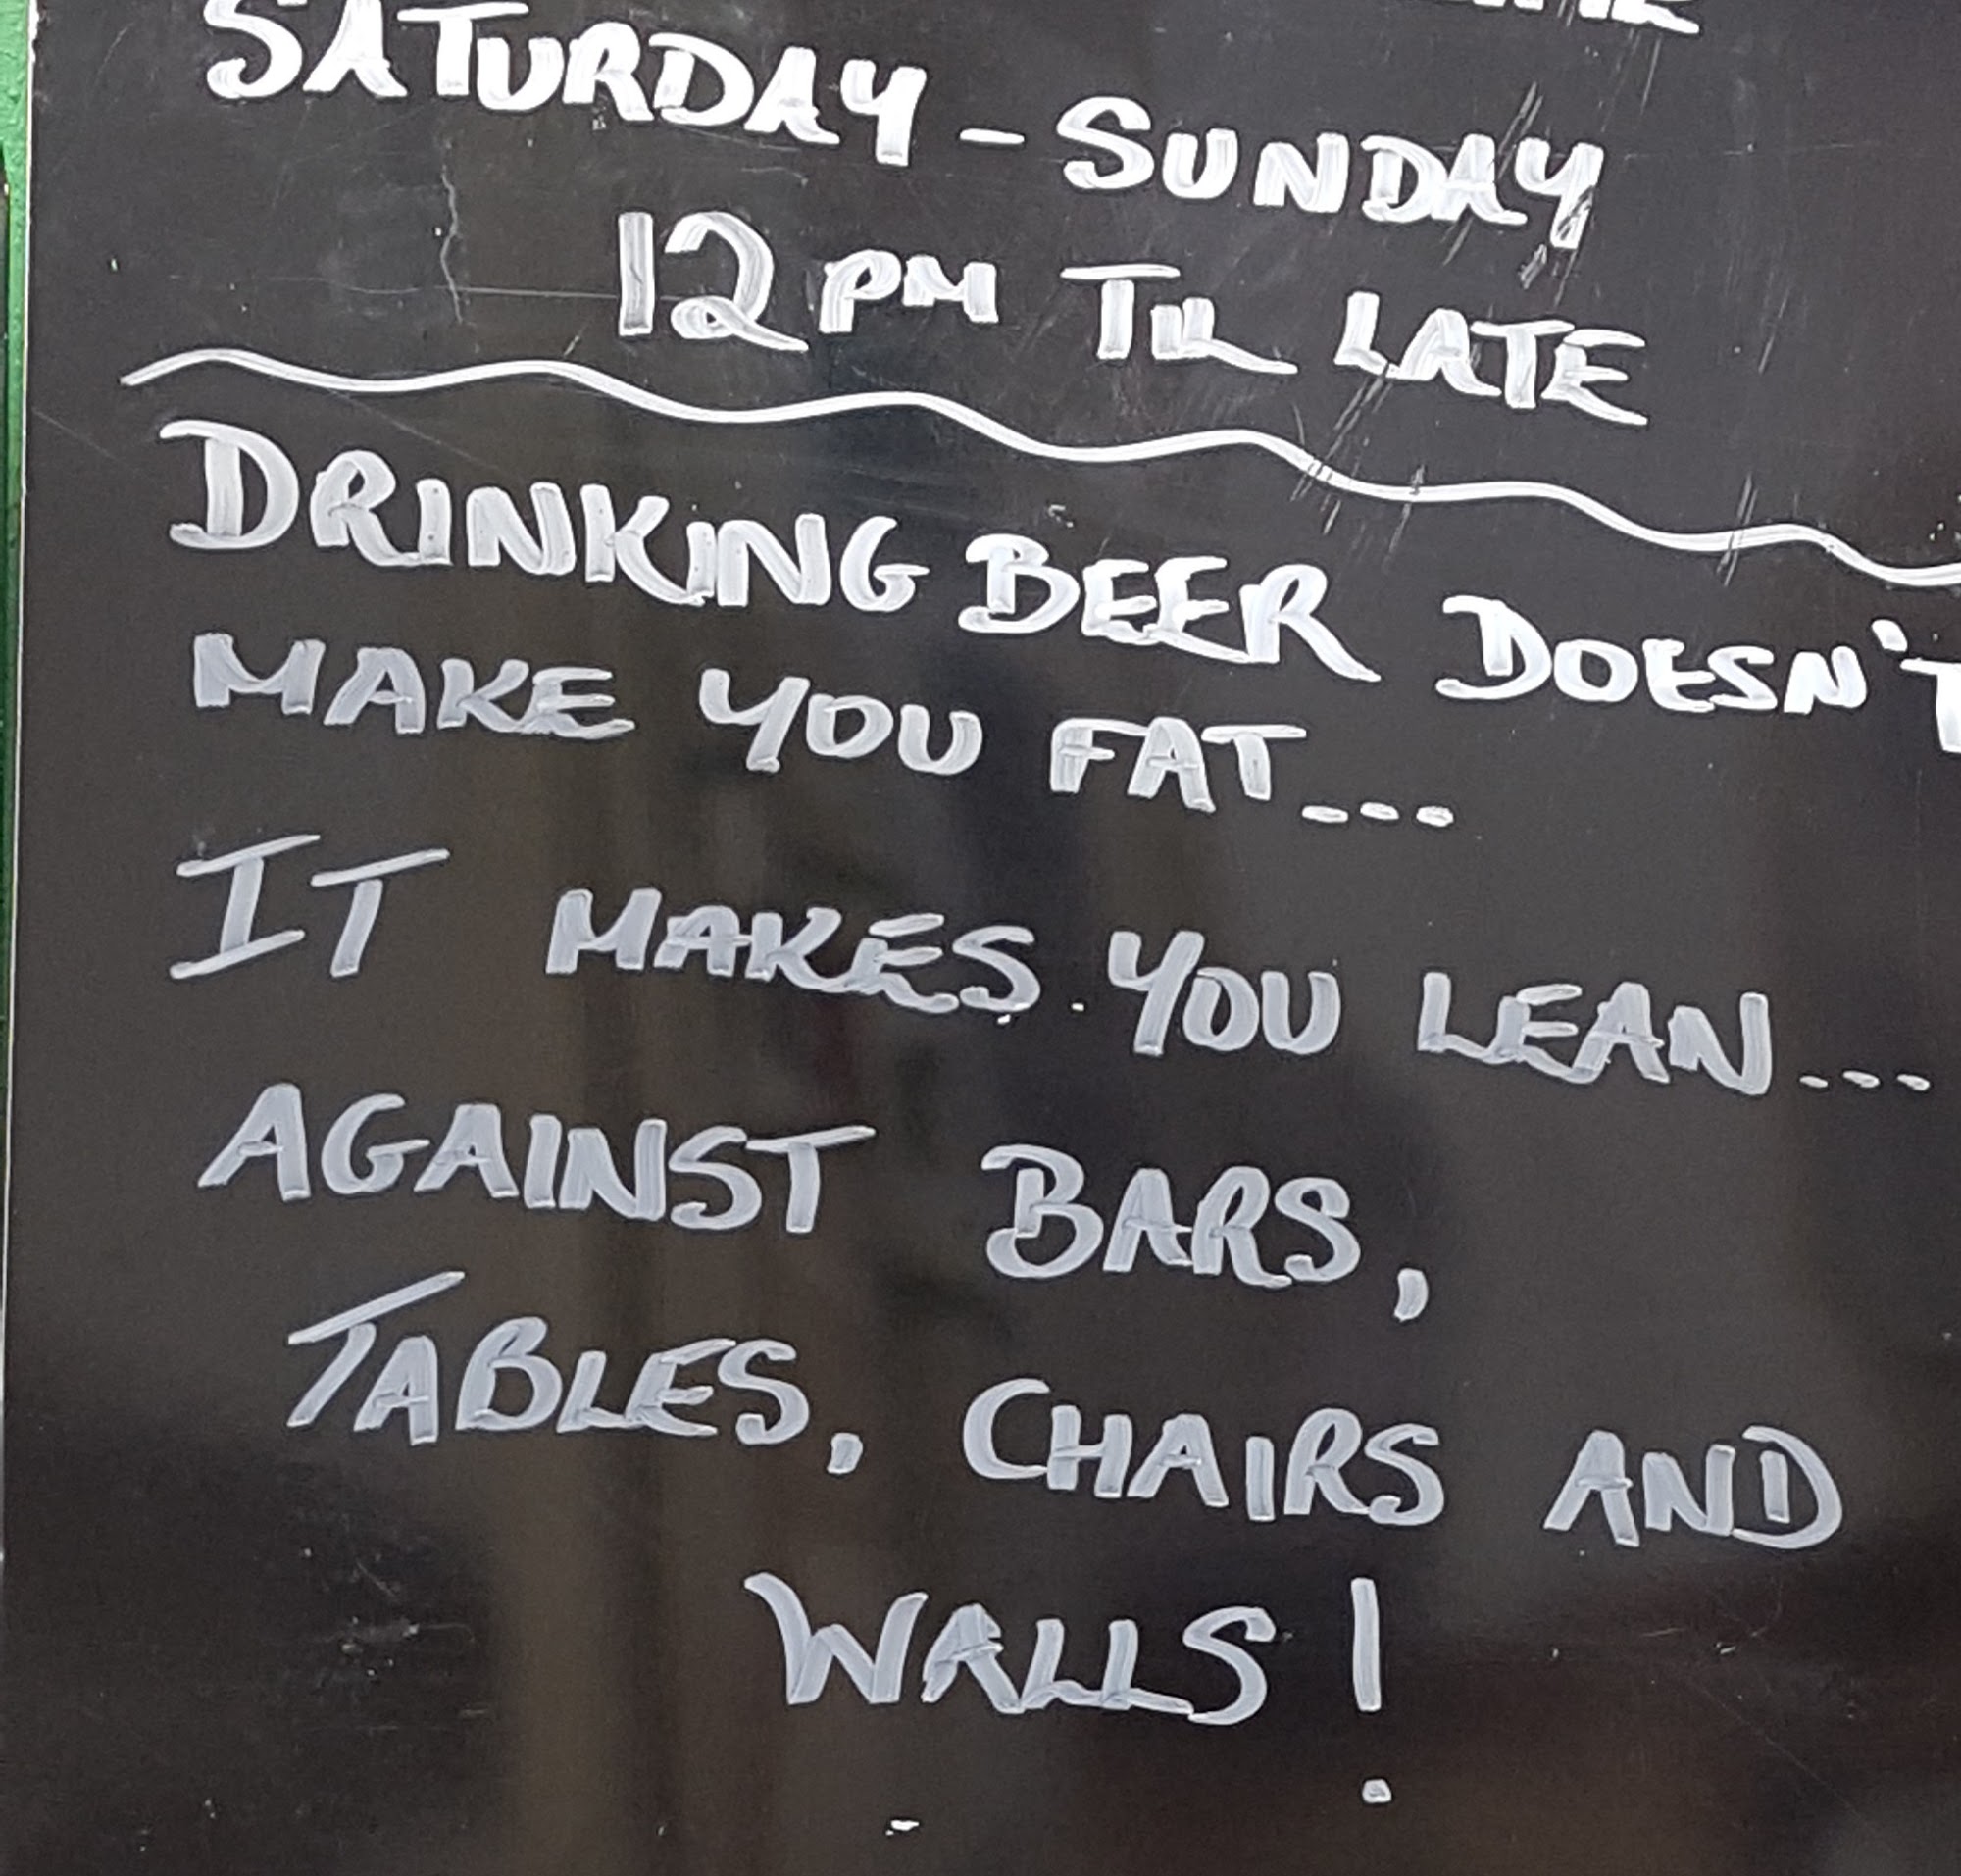 SATURDAY - SUNDAY
12PM TIL LATE
DRINKING BEER DOESN'T
MAKE YOU FAT...
IT MAKES YOU LEAN...
AGAINST BARS,
TABLES, CHAIRS AND
WALLS!